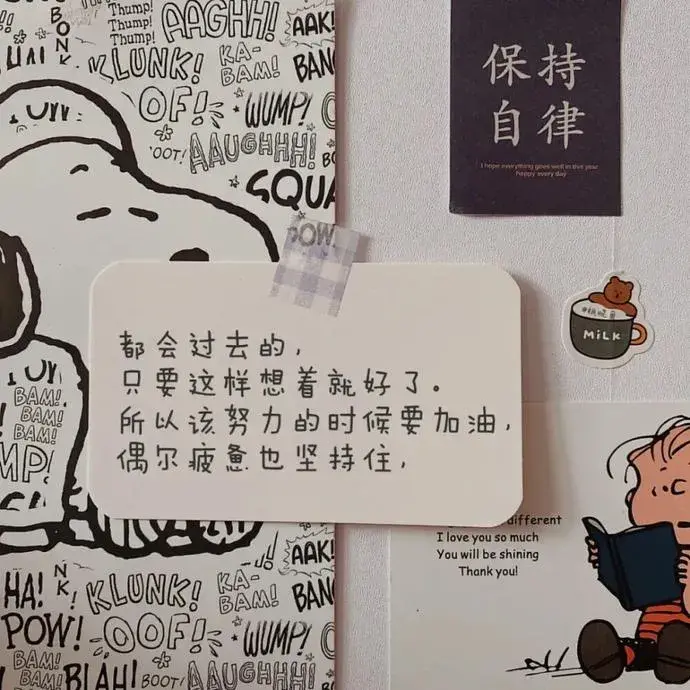 BONK
Thump!
Thump!
Thump!
AAGHH!
AAK!
KLUNK!
KA-
BAM!
BANG
OOF!
WUMP!
BOOT!
AAUGHHH!
SQUA
POW!
保持
自律
I hope everything goes well in this year
happy every day
MILK
都会过去的，
只要这样想着就好了。
所以该努力的时候要加油，
偶尔疲惫也坚持住，
BAM!
BAM!
BAM!
WUMP!
different
I love you so much
You will be shining
Thank you!
HA!
NK!
KLUNK!
KA-
BAM!
AAK!
BANG
POW!
OOF!
WUMP!
BAM!
BAM!
BLAH!
BOOT!
AAUGHHH!